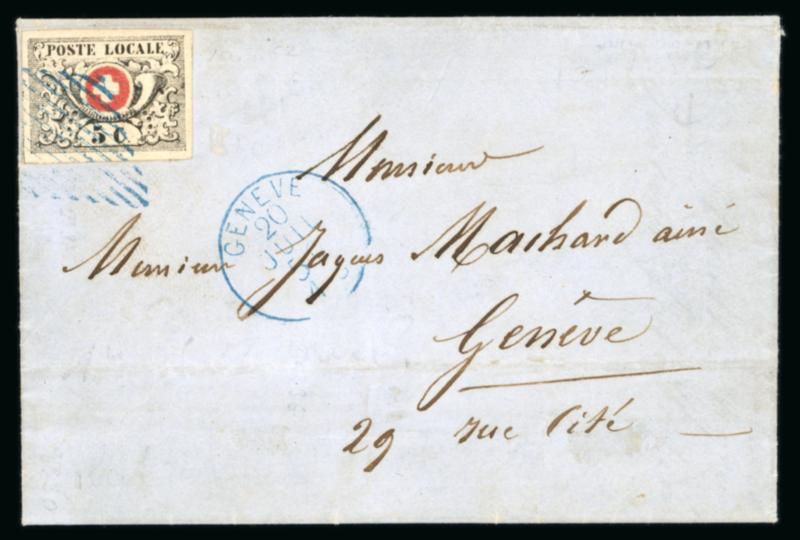 POSTE LOCALE
5 C
GENEVE
20
JUIL
Monsieur
Monsieur Jaques Machard ainé
Genève
29 rue Cité